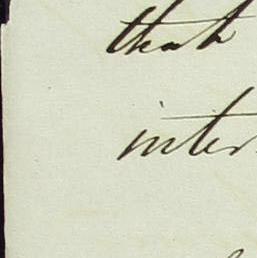 that
inter